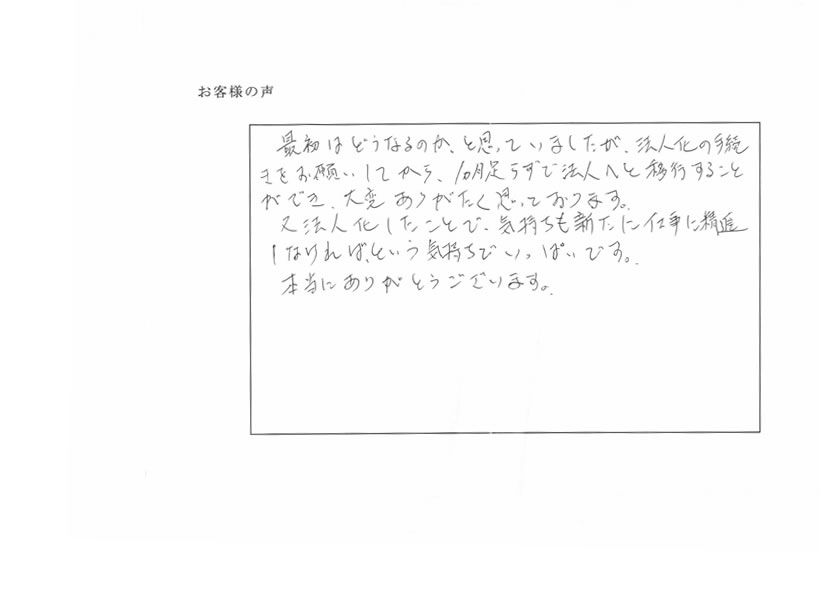 お客様の声
最初はどうなるのか、と思っていましたが、法人化の手続
きをお願いしてから、1ヵ月足らずで法人へと移行すること
ができ、大変ありがたく思っております。
又法人化したことで、気持ちも新たに仕事に精進
しなければ、という気持ちでいっぱいです。
本当にありがとうございます。